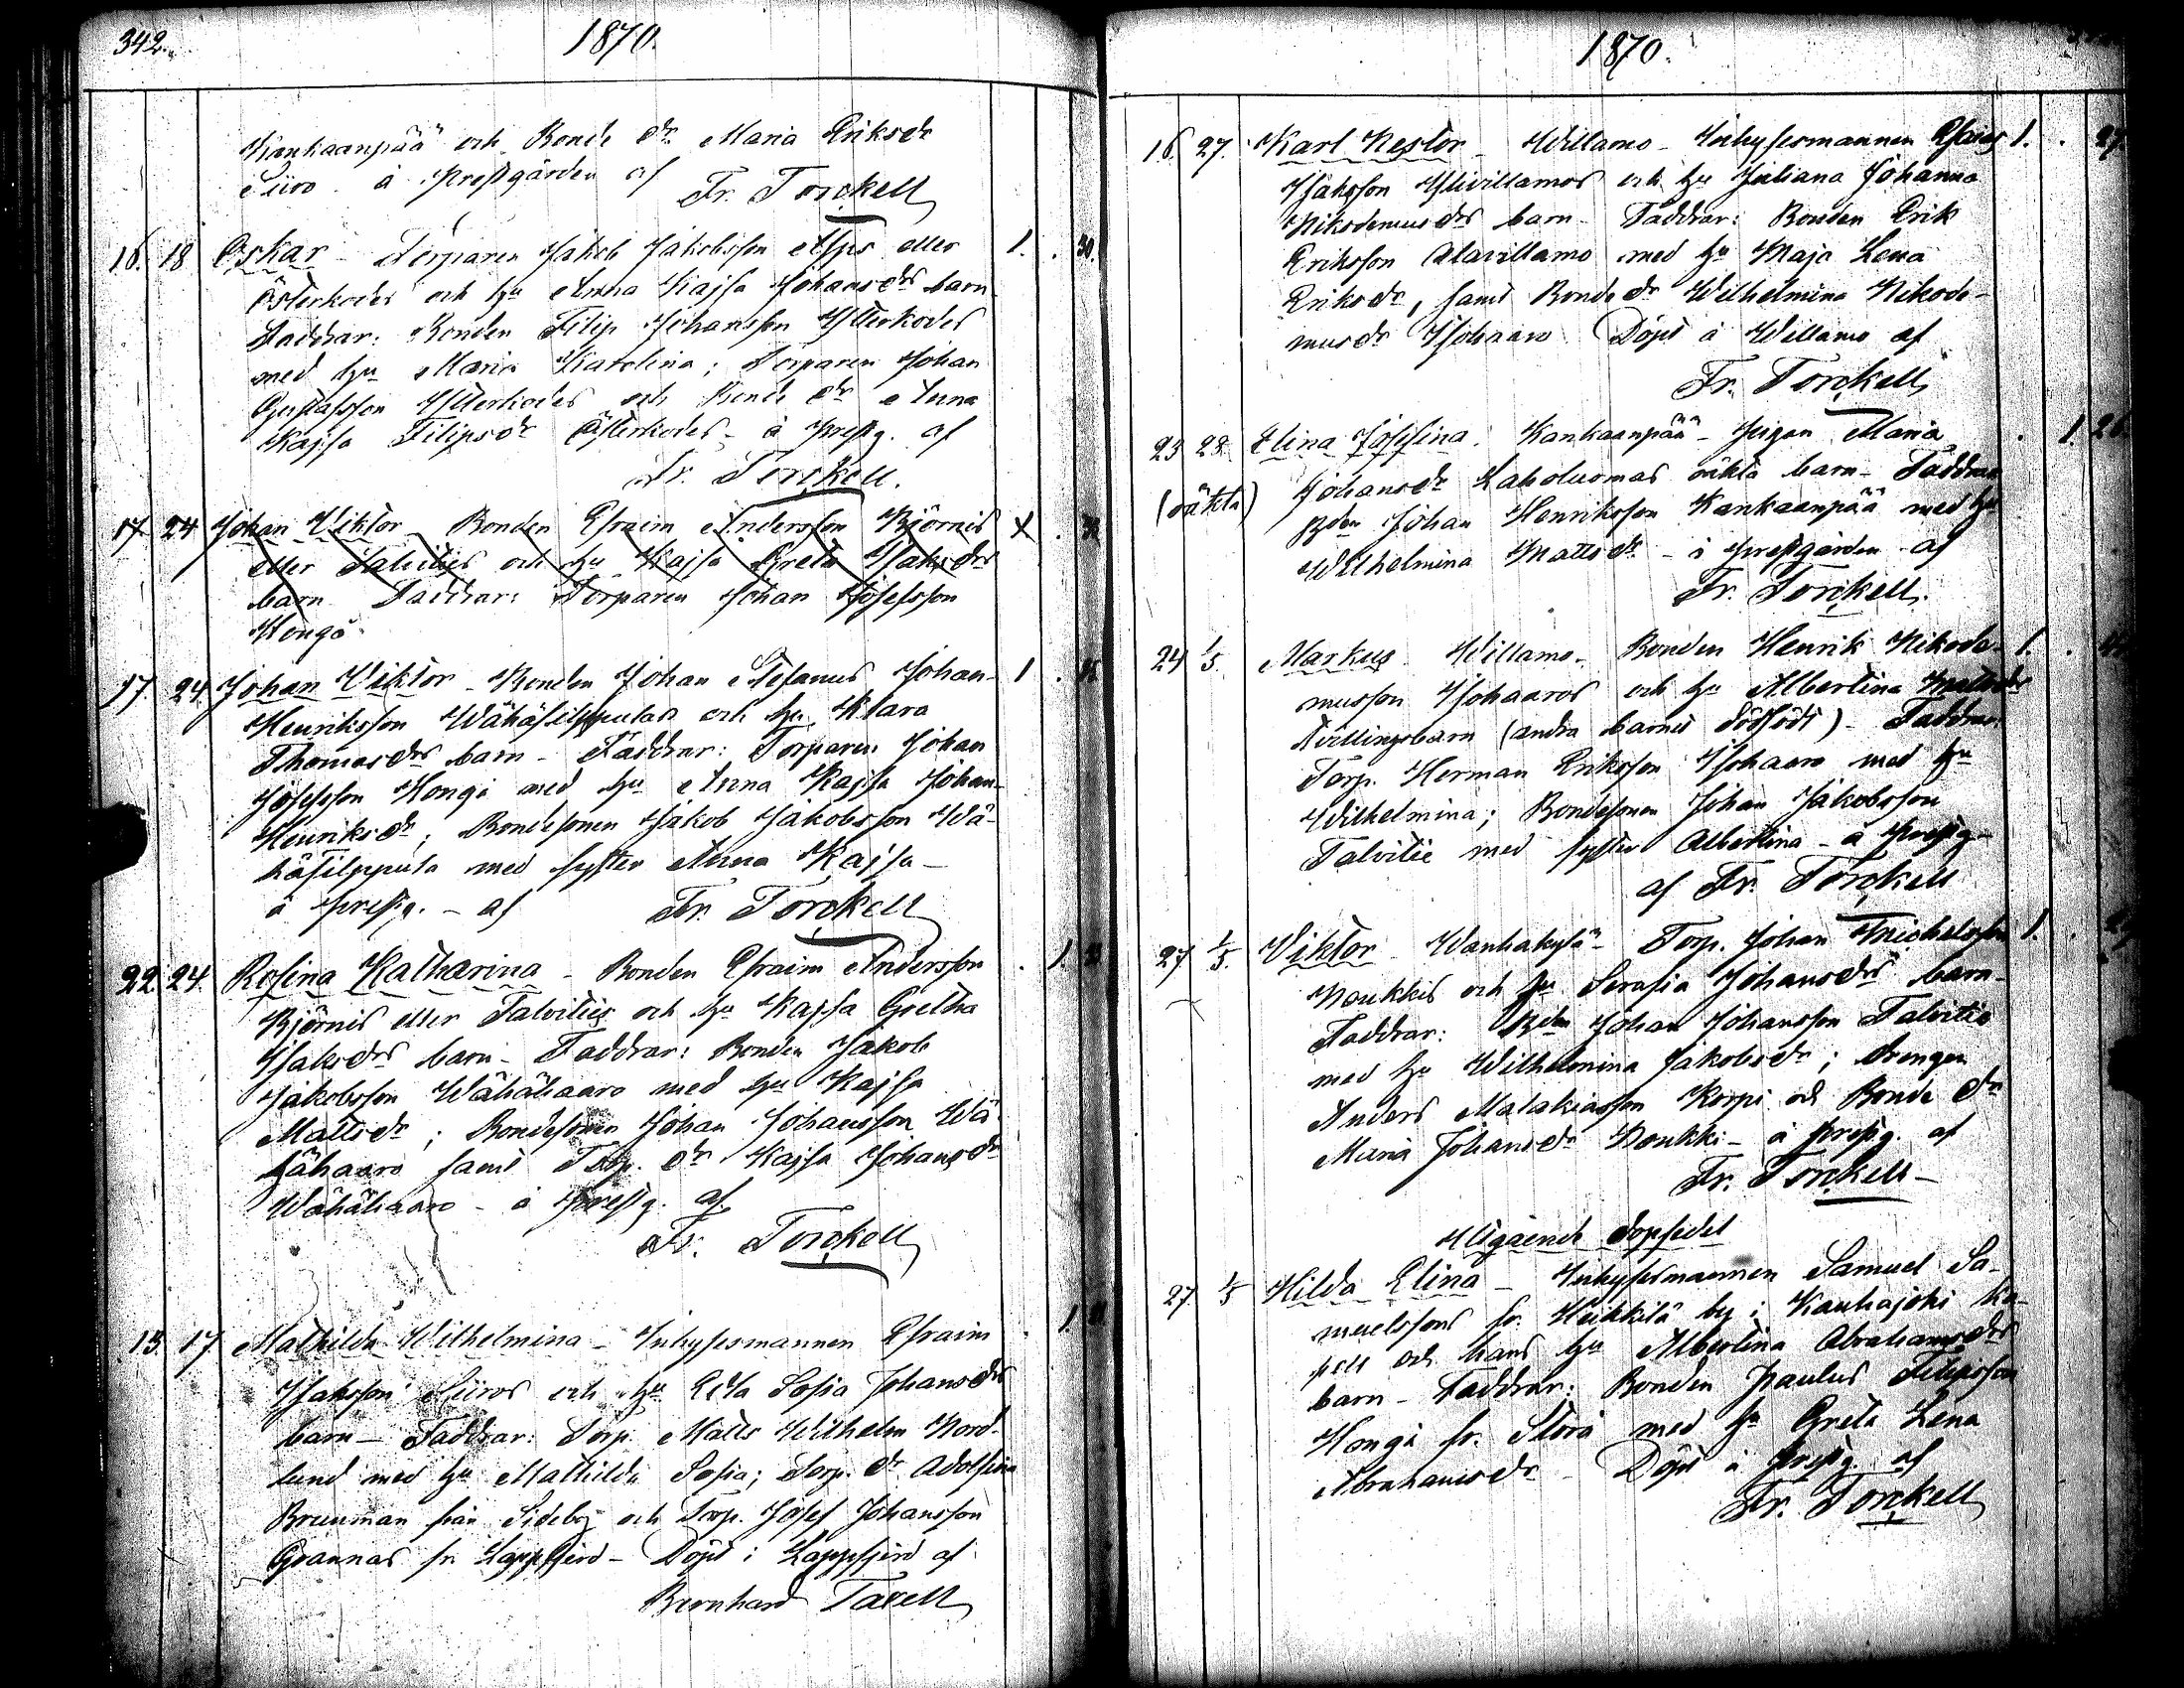 342.
1870.
Kankaanpää och Bonde dr Maria Eriksdr
Siiro å prestgården af
Fr. Torckell
16. 18 Oskar Torparen Jakob Jakobsson eller 1. 30.
Österkodes och hu Anna Kajsa Johansdrs barn
Faddrar: Bonden Filip Johansson Ytterkodes
med hu Maria Karolina; Torparen Johan
Gustafsson Ytterkodes och Bonde dr Anna
Kajsa Filipsdr Österkodes - å prestg. af
Fr. Torckell.
17. 24 Johan Viktor Bonden Efraim Andersson Björnis
eller Talvities och hu Kajsa Greta Isaksdrs
barn Faddrar: Torparen Johan Josefsson
Honga
17. 24. Johan Viktor - Bonden Johan Stefanus Johan- 1
Henriksson Wähäfilppulas och hu Klara
Thomasdrs barn - Faddrar: Torparen Johan
Josefsson Hongi med hu Anna Kajsa Johan-
Henriksdr; Bondesonen Jakob Jakobsson Wä-
häfilppula med syster Anna Kajsa -
å prestg. - af Fr. Torckell
22. 24. Rosina Katharina - Bonden Efraim Andersson 1.
Björnis eller Talvities och hu Kajsa Gretha
Isaksdrs barn - Faddrar: Bonden Jakob
Jakobsson Wähähaaro med hu Kajsa
Mattsdr; Bondesonen Johan Johansson Wä-
hähaaro samt Torp. dr Kajsa Johansdr
Wähähaaro - å prestg. af
Fr. Torckell
13. 17 Mathilda Wilhelmina - Inhysesmannen Efraim 1.
Isaksson Siiros och hu Edla Sofia Johansdrs
barn - Faddrar: Torp. Matts Wilhelm Nord-
lund med hu Mathilda Sofia; Torp. dr Adolfina
från Sideby och Torp. Josef Johansson
Grannas fr. Lappfjerd - Döpt i Lappfjerd af
Bernhard Taxell
1870.
16. 27. Karl Nestor - Willamo - Inhysesmannen Esaias 1. 27
Isaksson Ylivillamos och hu Juliana Johanna
Nikodemusdrs barn - Faddrar: Bonden Erik
Eriksson Alavillamo med hu Maja Lena
Eriksdr, samt Bonde dr Wilhelmina Nikode-
musdr Isohaaro Döpt å Willamo af
Fr. Torckell
23 28. Elina Josefina. Kankaanpää - Pigan Maria 1.
(oäkta) Johansdr Laholuomas oäkta barn - Faddrar
Bden Johan Henriksson Kankaanpää med hu
Wilhelmina Mattsdr - å prestgården af
Fr. Torckell.
24 1/5. Markus. Willamo - Bonden Henrik Nikode- 1.
musson Isohaaros och hu Albertina Mattsdrs
tvillingsbarn (andra barnet dödfödt) - Faddrar
Torp. Herman Eriksson Isohaaro med hu
Wilhelmina; Bondesonen Johan Jakobsson
Talvitie med syster Albertina - å prestg -
af Fr. Torckell
27 1/5. Viktor Wanhakylä - Torp. Johan Michelsson 1.
Noukkis och hu Serafia Johansdrs barn -
Faddrar: Bden Johan Johansson Talvitie
med hu Wilhelmina Jakobsdr; drengen
Anders Malakiasson Korpi och Bonde dr
Maria Johansdr Noukki - å prestg. af
Fr. Torckell -
Utgående dopsedel
27. 1/5 Hilda Elina - Inhysesmannen Samuel Sa-
muelssons fr. Heikkilä by i Kauhajoki ka-
pell och hans hu Albertina Abrahamsdrs
barn - Faddrar: Bonden Paulus Filipsson
Hongi fr. Storå med hu Greta Lena
Abrahamsdr - Döpt å prestg af
Fr. Torckell